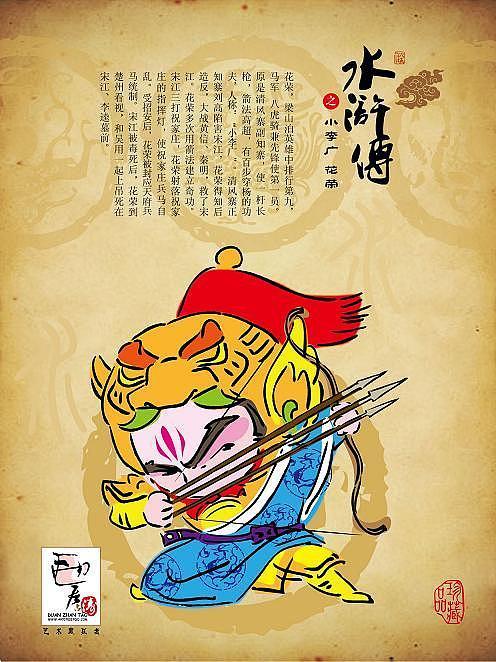 水滸傳
之
小李广 花荣
花荣，梁山泊英雄中排行第九，
马军 八虎骑兼先锋使第一员。
原是清风寨副知寨，使一杆长
枪，箭法高超，有百步穿杨的功
夫，人称：“小李广”。清风寨正
知寨刘高陷害宋江，花荣得知后
造反，大战黄信、秦明，救了宋
江。花荣多次用箭法建立奇功。
宋江三打祝家庄，花荣射落祝家
庄的指挥灯，使祝家庄兵马自
乱。受招安后，花荣被封应天府兵
马统制。宋江被毒死后，花荣到
楚州看视，和吴用一起上吊死在
宋江、李逵墓前。
DUAN ZHAN TAO
珍藏品